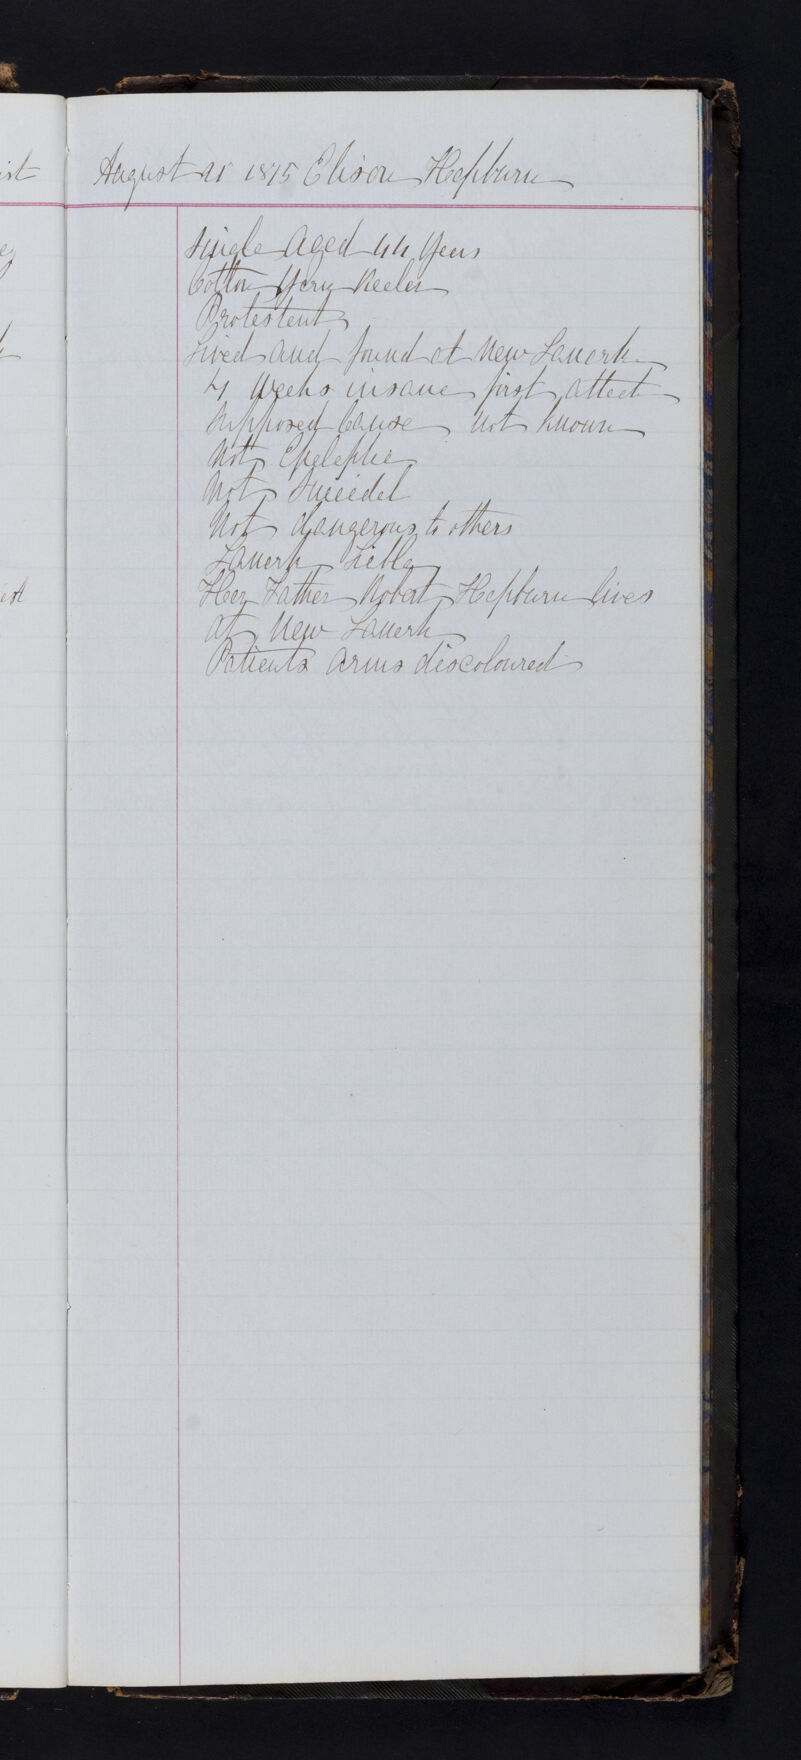 August 21 1875 Elison Hepburn
Single Aged 44 Years
Cotton Yern Reeler
Protestent
Lived and found at New Lanerk
4 Weeks insane first atteck
Supposed Cause not known
Not Epeleptic
Not Sueidel
Not dangerous to others
Lanerk Lieble
Her Father Robert Hepburn lives
at New Lanerk
Patients arms discoloured